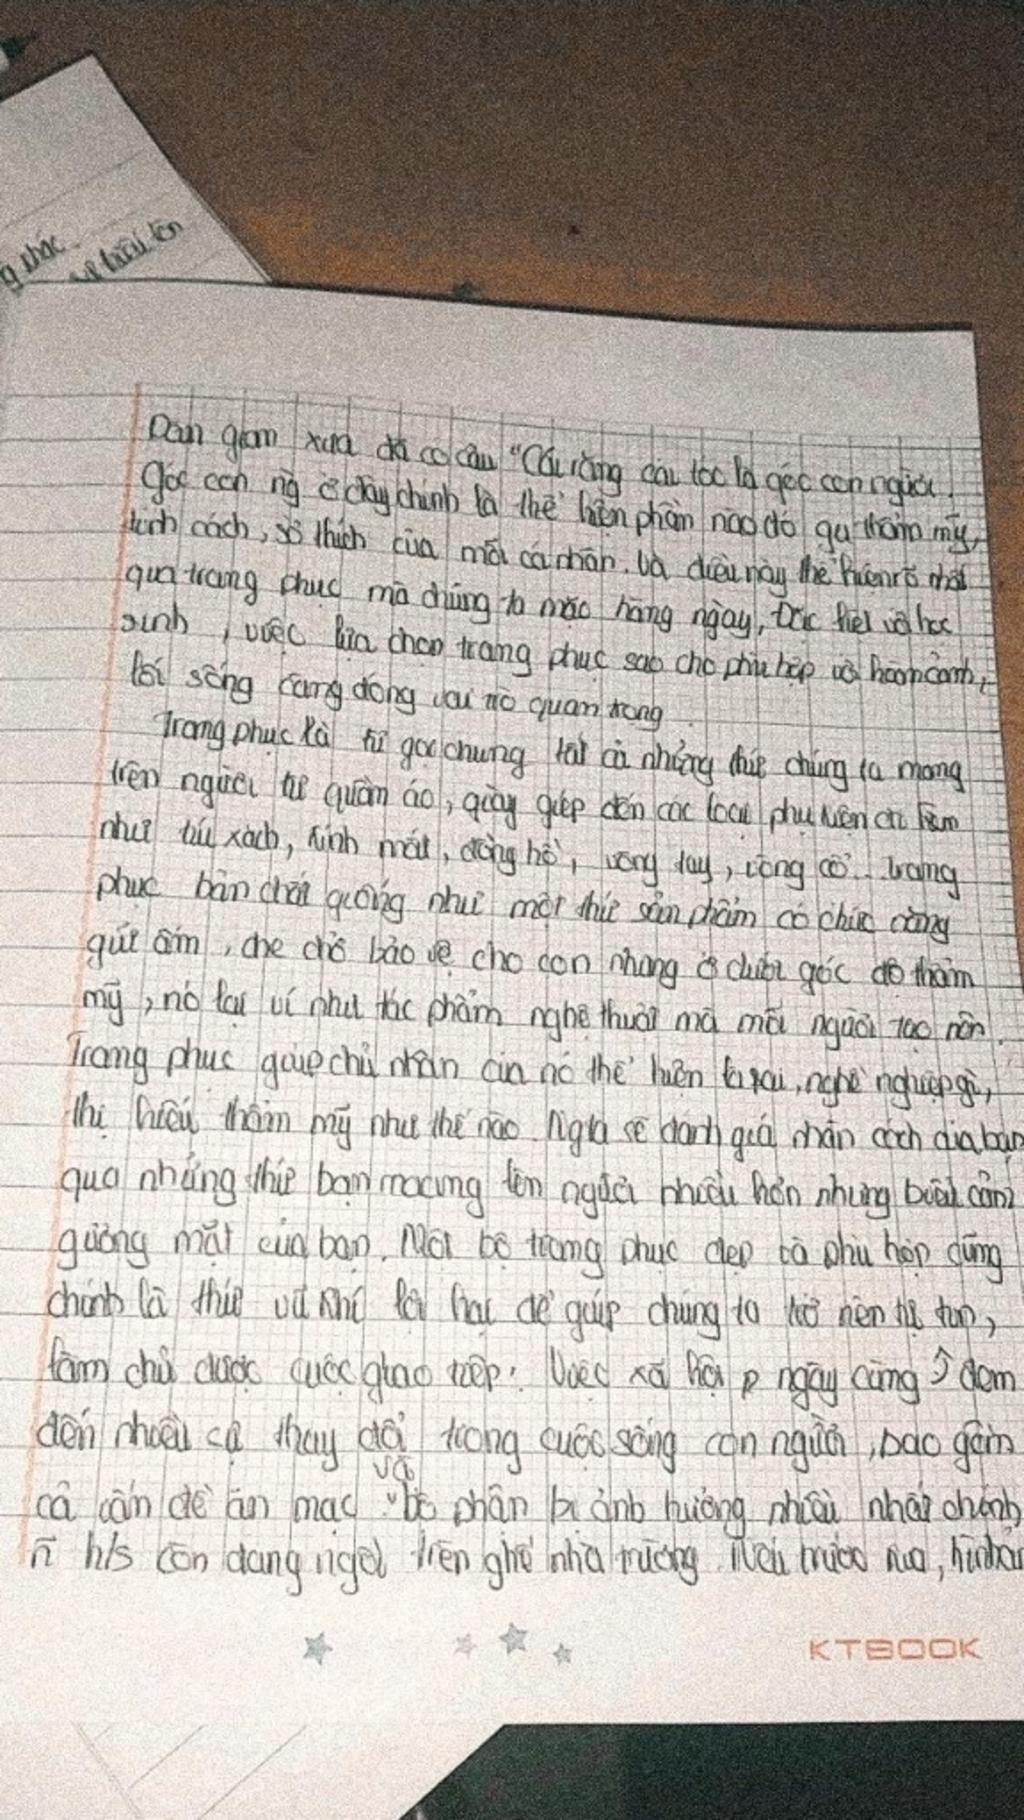 g khác
hiểu lên
Dân gian xưa đã có câu "Cái răng cái tóc là góc con người.
Góc con ng ở đây chính là thể hiện phần nào đó qu thẩm mỹ,
tính cách, sở thích của mỗi cá nhân. Và điều này thể hiện rõ nhất
qua trang phục mà chúng ta mặc hàng ngày, Đặc biệt với học
sinh, việc lựa chọn trang phục sao cho phù hợp với hoàn cảnh,
lối sống càng đóng vai trò quan trọng
Trang phục là từ gọi chung tất cả những thứ chúng ta mang
trên người từ quần áo, giày giép đến các loại phụ kiện đi kèm
như túi xách, kính mát, đồng hồ, vòng tay, vòng cổ... trang
phục bản chất giống như một thứ sản phẩm có chức năng
giữ ấm, che chở bảo vệ cho con nhưng ở dưới góc độ thẩm
mỹ, nó lại ví như tác phẩm nghệ thuật mà mỗi người tạo nên.
Trang phục giúp chủ nhân của nó thể hiện là ai, nghề nghiệp gì,
thị hiếu thẩm mỹ như thế nào. Ngta sẽ đánh giá nhân cách của bạn
qua những thứ bạn lên người nhiều hơn nhưng
gương mặt của bạn. Một bộ trang phục đẹp và phù hợp cũng
chính là thứ vũ khí lợi hại để giúp chúng ta trở nên tự tin,
làm chủ được cuộc giao tiếp. Việc xã hội p ngày càng đem
đến nhiều sự thay đổi trong cuộc sống con người, bao gồm
cả vấn đề ăn mặc và bộ phận bị ảnh hưởng nhiều nhất chính
h/s còn đang ngồi trên ghế nhà trường. Nếu trước kia,
KTBOOK